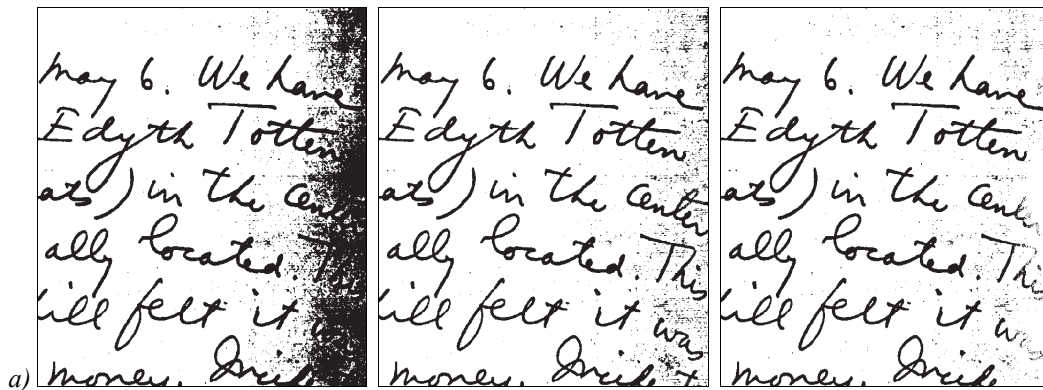 May 6. We have
Edyth Totten
ats) in the
ally located.
felt it
money.
May 6. We have
Edyth Totten
ats) in the center
ally located. This
felt it was
money.
May 6. We have
Edyth Totten
ats) in the center
ally located. This
felt it was
money.
a)